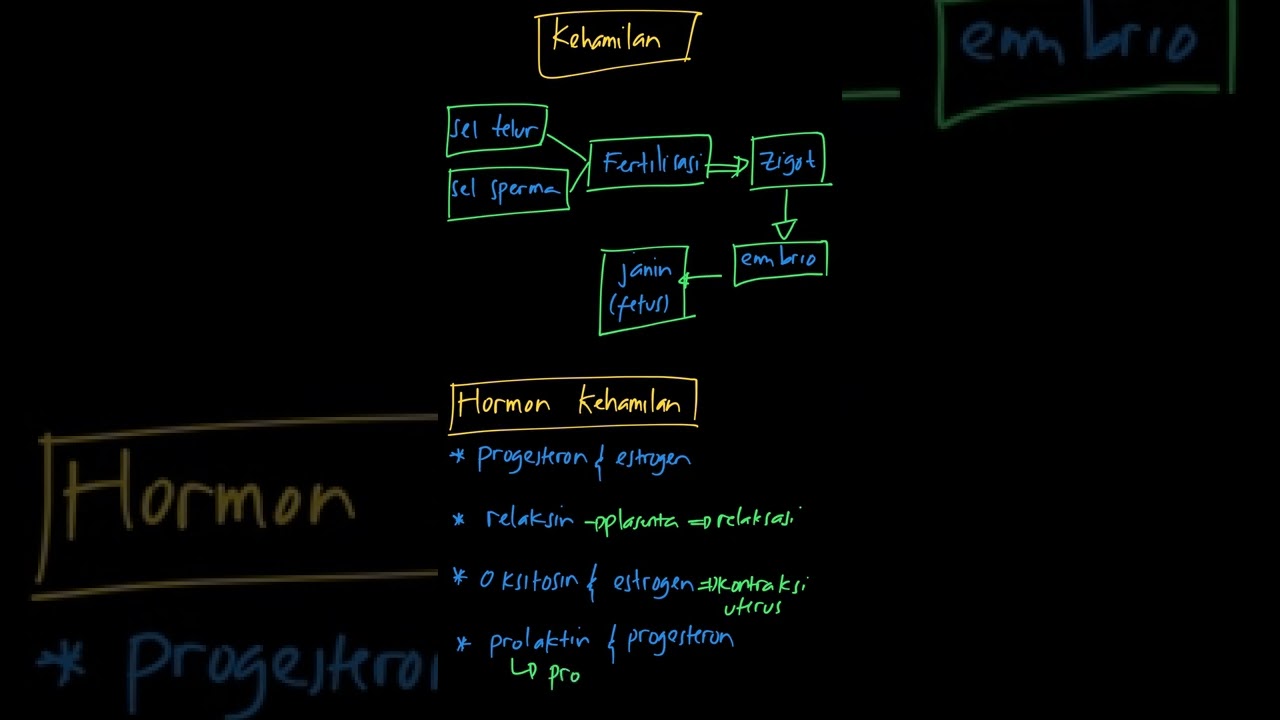 Kehamilan
sel telur
sel sperma
Fertilisasi
Zigot
embrio
janin
(fetus)
Hormon Kehamilan
* progesteron & estrogen
* relaksin → plasenta ⇒ relaksasi
* Oksitosin & estrogen ⇒ kontraksi
uterus
* prolaktin & progesteron
↳ pro
embrio
Hormon
* progesteron